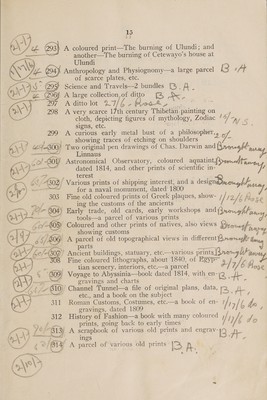 15
293 A coloured print—The burning of Ulundi; and
another—The burning of Cetewayo's house at
Ulundi
294 Anthropology and Physiognomy—a large parcel
of scarce plates, etc.
295 Science and Travels—2 bundles B.A.
296 A large collection of ditto B.A.
297 A ditto lot
298 A very scarce 17th century Thibetan painting on
cloth, depicting figures of mythology, Zodiac
signs, etc.
299 A curious early metal bust of a philosopher,
showing traces of etching on shoulders
300 Two original pen drawings of Chas. Darwin and
Linnæus
301 Astronomical Observatory, coloured aquatint,
dated 1814, and other prints of scientific in-
terest
302 Various prints of shipping interest, and a design
for a naval monument, dated 1800
303 Fine old coloured prints of Greek plaques, show-
ing the customs of the ancients
304 Early trade, old cards, early workshops and
tools—a parcel of various prints
305 Coloured and other prints of natives, also views
showing customs
306 A parcel of old topographical views in different
parts
307 Ancient buildings, statuary, etc.—various prints
308 Fine coloured lithographs, about 1840, of Egyp-
tian scenery, interiors, etc.—a parcel
309 Voyage to Abyssinia—book dated 1814, with en-
gravings and charts
310 Channel Tunnel—a file of original plans, data,
etc., and a book on the subject
311 Roman Customs, Costumes, etc.—a book of en-
gravings, dated 1809
312 History of Fashion—a book with many coloured
prints, going back to early times
313 A scrapbook of various old prints and engrav-
ings
314 A parcel of various old prints B.A.